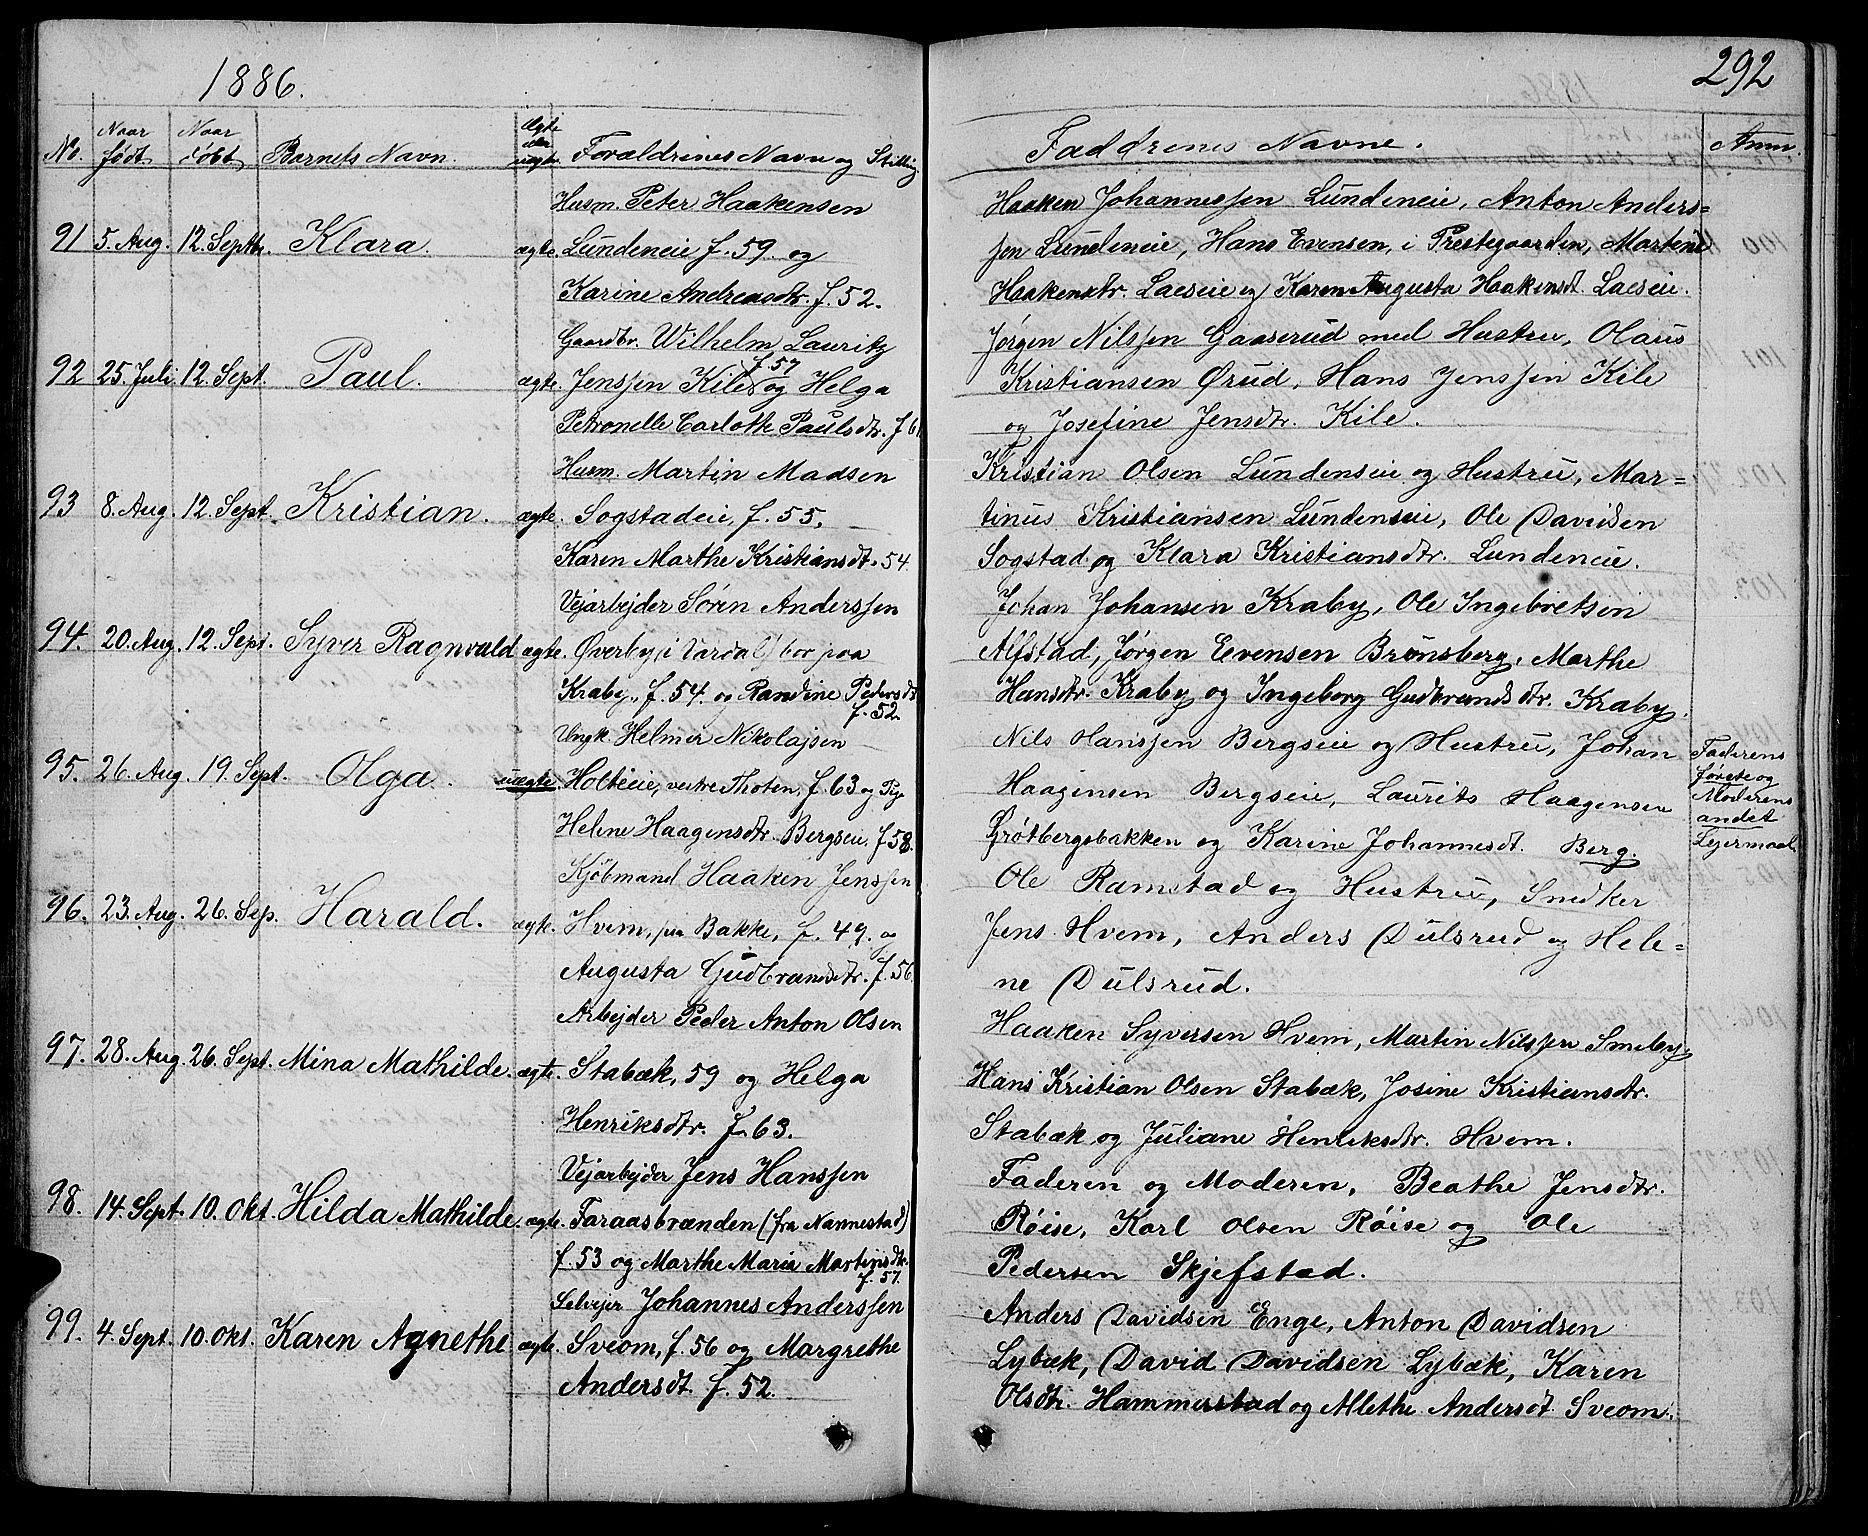 1886.
No. Naar født. Naar døbt. Barnets Navn. Ægte eller uægte. Forældrenes Navn og Stilling
Husm. Peter Haakensen
91 5. Aug. 12. Septbr. Klara. ægte. Lundeneie f. 59. og
Karine Andreasdtr. f. 52.
Gaardbr. Wilhelm Lauritz
92 25. Juli 12. Sept. Paul. ægte. Jenssen Kile f. 57 og Helga
Petronelle Carlothe Paulsdtr. f 61
Husm. Martin Madsen
93 8. Aug. 12. Sept. Kristian. ægte. Sogstadeie, f. 55.
Karen Marthe Kristiansdt. 54.
Vejarbejder Søren Anderssen
94. 20. Aug. 12. Sept. Syver Ragnvald ægte. Øverby, i Vardal, bor paa
Kraby, f. 54. og Randine Pedersdt
f. 52.
Ungk. Helmer Nikolajsen
95. 26. Aug. 19. Sept. Olga. uægte. Holteie, vestre Thoten, f. 63 og Pige
Helene Haagensdtr. Bergseie, f 58.
Kjøbmand Haaken Jenssen
96. 23. Aug. 26. Sep. Harald. ægte. Hvem, paa Bakke, f. 49. og
Augusta Gudbrandsdtr. f. 56.
Arbejder Peder Anton Olsen
97. 28. Aug. 26. Sept. Mina Mathilde. ægte. Stabæk, 59 og Helga
Henriksdtr. f. 63.
Vejarbejder Jens Hanssen
98. 14. Sept. 10. Okt. Hilda Mathilde. ægte. Faraasbrænden (fra Nannestad)
f. 53 og Marthe Maria Martinsdtr.
f. 57.
Selvejer Johannes Anderssen
99. 4. Sept. 10. Okt. Karen Agnethe ægte. Sveom, f. 56 og Margrethe
Andersdt. f. 52.
292
Faddrenes Navne. Anm.
Haaken Johannessen Lundeneie, Anton Anders=
sen Lundeneie, Hans Evensen, i Prestegaarden, Martene
Haakensdtr. Laeseie og Karen Augusta Haakensdt. Laeseie.
Jørgen Nilssen Gaaserud med Hustru, Olaus
Kristiansen Ørud, Hans Jenssen Kile
og Josefine Jensdtr. Kile.
Kristian Olsen Lundenseie og Hustru, Mar=
tinus Kristiansen Lundenseie, Ole Davidsen
Sogstad og Klara Kristiansdtr. Lundeneie.
Johan Johansen Kraby, Ole Ingebretsen
Alfstad, Jørgen Evensen Brunsberg, Marthe
Hansdtr. Kraby og Ingeborg Gudbrandsdtr. Kraby.
Nils Hanssen Bergseie og Hustru, Johan
Haagensen Bergseie, Laurits Haagensen
Grøtbergsbakken og Karine Johannesdt. Berg.
Faderens
første og
Moderens
andet
Lejermaal.
Ole Ramstad og Hustru, Snedker
Jens Hvem, Anders Dulsrud og Hele=
ne Dulsrud.
Haaken Syversen Hvem, Martin Nilssen Smeby,
Hans Kristian Olsen Stabæk, Josine Kristiansdtr.
Stabæk og Juliane Henriksdtr. Hvem.
Faderen og Moderen, Beathe Jensdtr.
Røise, Karl Olsen Røise og Ole
Pedersen Skjefstad.
Anders Davidsen Enge, Anton Davidsen
Lybæk, David Davidsen Lybæk, Karen
Olsdtr. Hammerstad og Allethe Andersdt. Sveom.